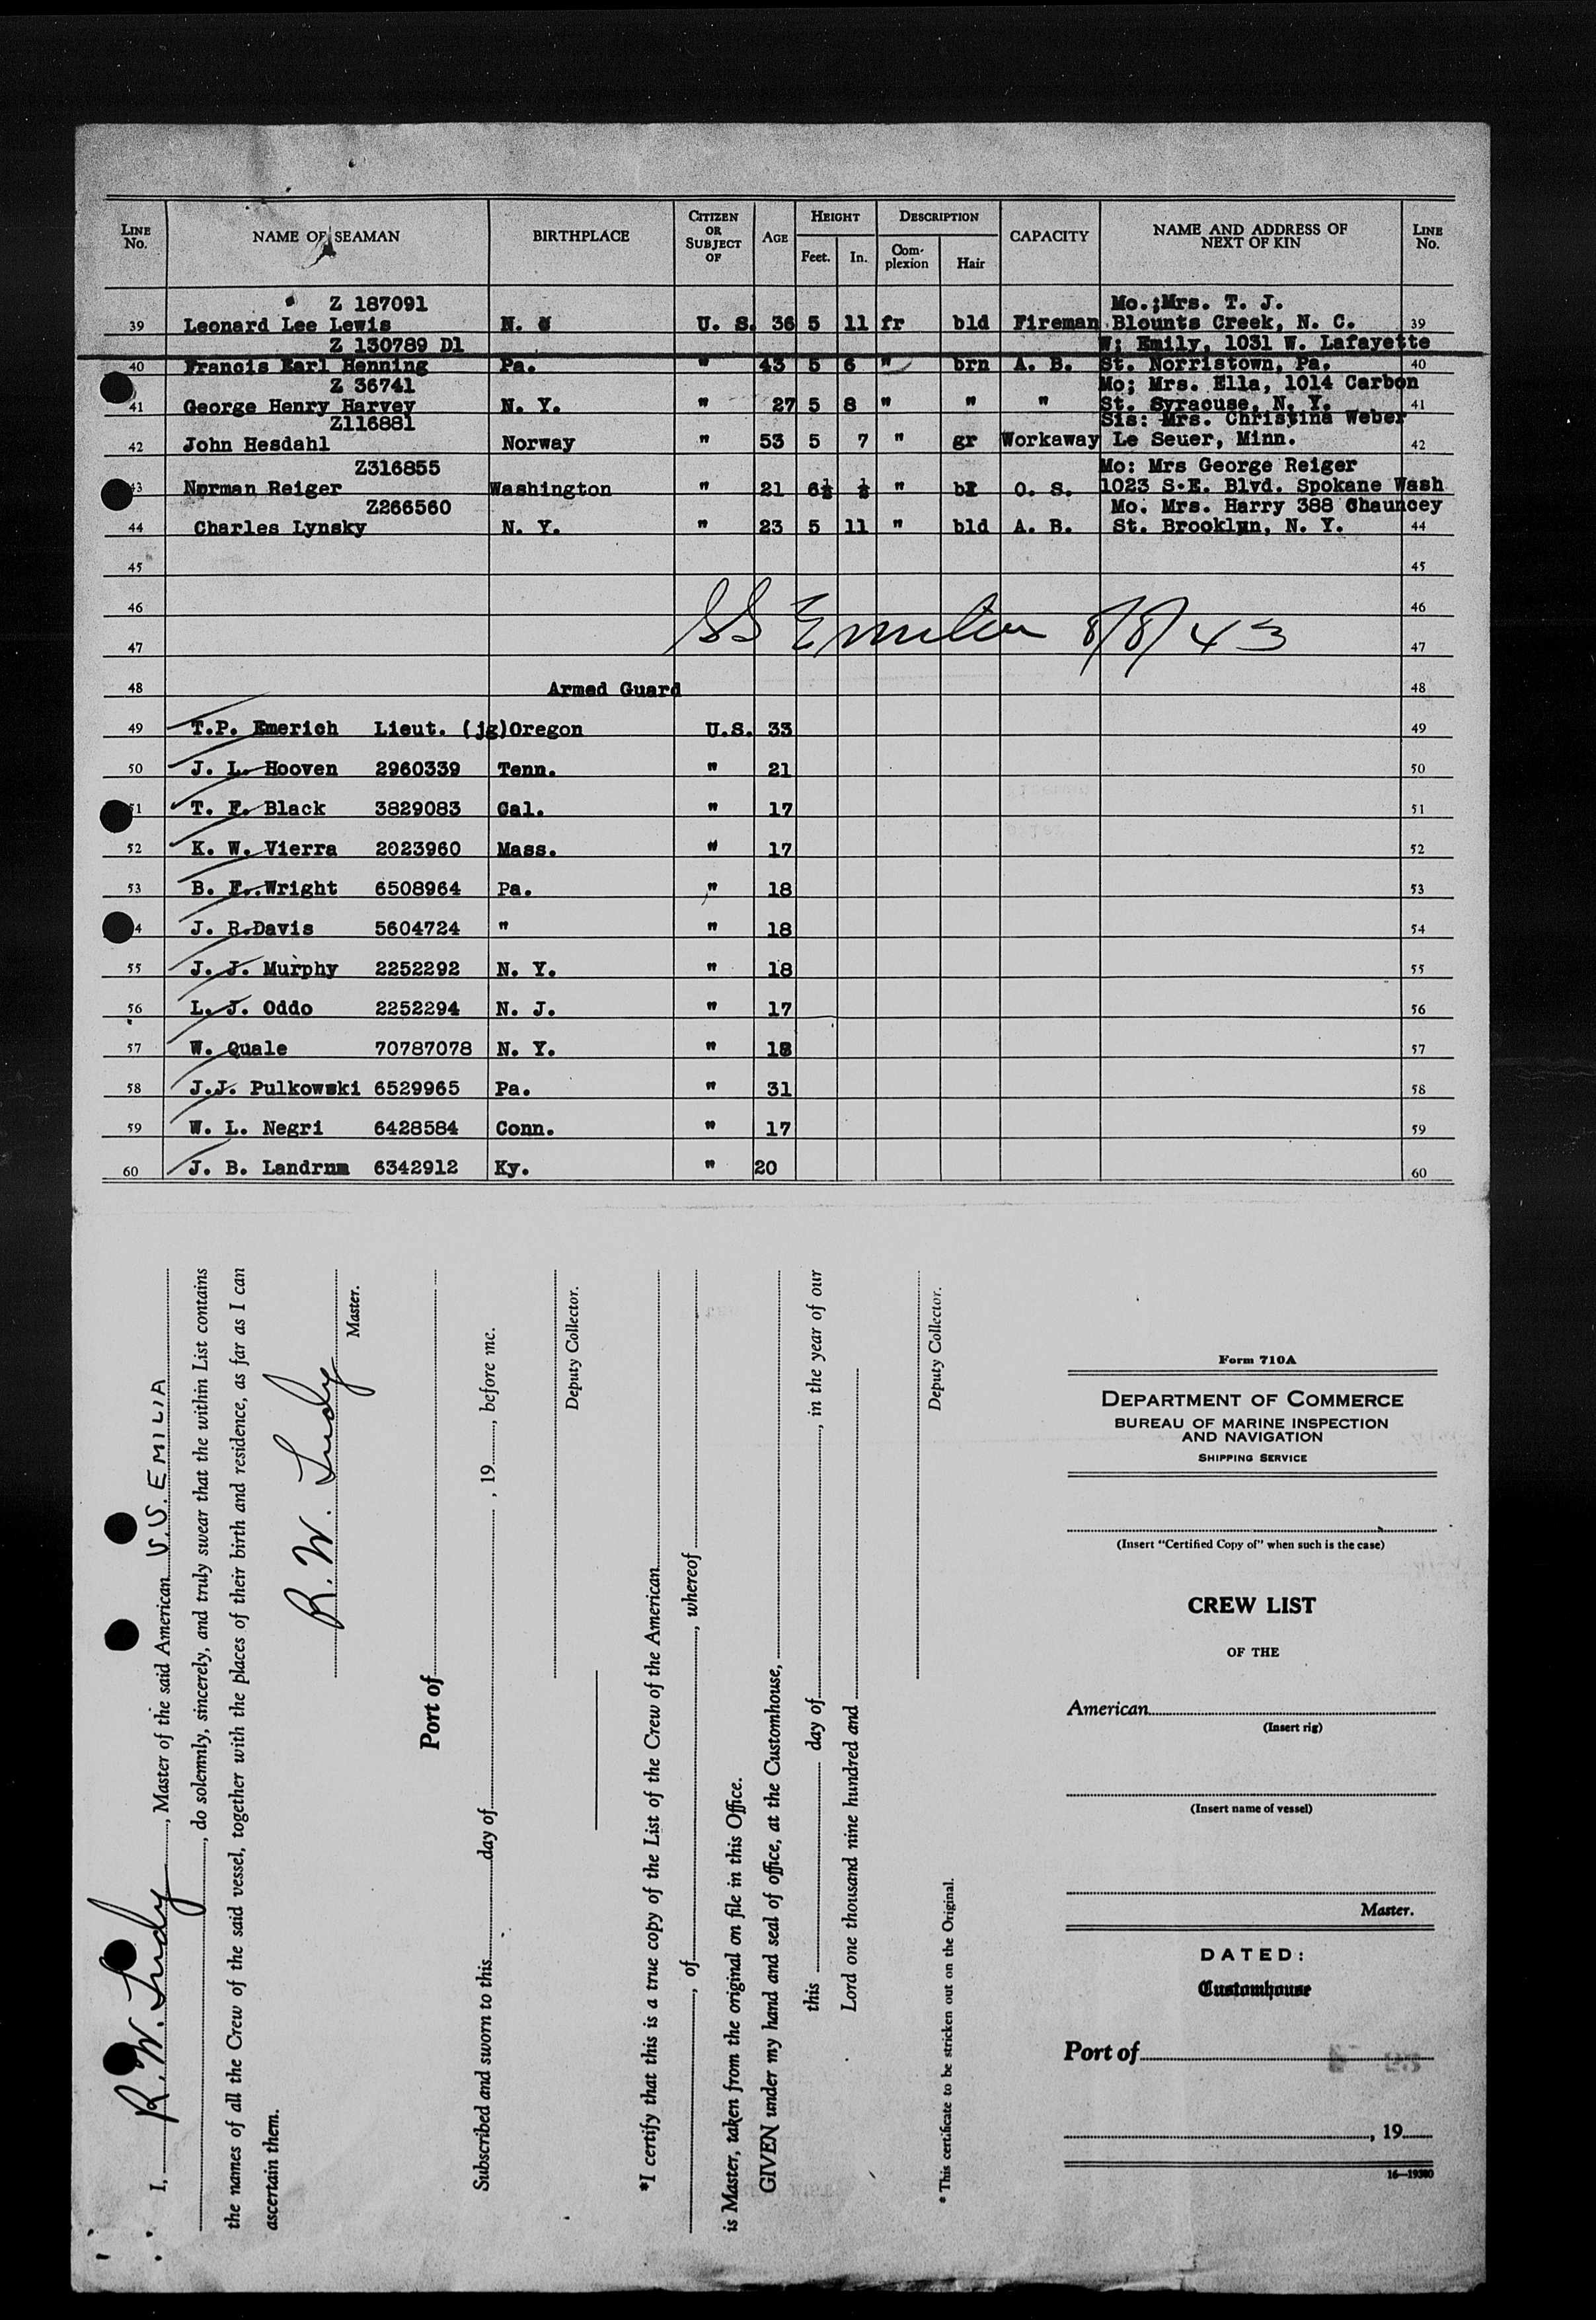 LINE No. NAME OF SEAMAN BIRTHPLACE CITIZEN OR SUBJECT OF AGE HEIGHT Feet. In. DESCRIPTION Com-plexion Hair CAPACITY NAME AND ADDRESS OF NEXT OF KIN LINE No.
Z 187091 Mo.;Mrs. T. J.
39 Leonard Lee Lewis N. C U. S. 36 5 11 fr bld Fireman Blounts Creek, N. C. 39
Z 130789 D1 W; Emily, 1031 W. Lafayette
40 Francis Earl Henning Pa. " 43 5 6 " brn A. B. St. Norristown, Pa. 40
Z 36741 Mo; Mrs. Ella, 1014 Carbon
41 George Henry Harvey N. Y. " 27 5 8 " " " St. Syracuse, N. Y. 41
Z116881 Sis: Mrs. Christina Weber
42 John Hesdahl Norway " 53 5 7 " gr Workaway Le Seuer, Minn. 42
Z316855 Mo: Mrs George Reiger
43 Norman Reiger Washington " 21 6½ ½ " bl O. S. 1023 S.E. Blvd. Spokane Wash
Z266560 Mo. Mrs. Harry 388 Chauncey
44 Charles Lynsky N. Y. " 23 5 11 " bld A. B. St. Brooklyn, N. Y. 44
45 45
46 46
SS Emilia 8/8/43
47 47
48 Armed Guard 48
49 T.P. Emerich Lieut. (jg) Oregon U.S. 33 49
50 J. L. Hooven 2960339 Tenn. " 21 50
51 T. F. Black 3829083 Cal. " 17 51
52 K. W. Vierra 2023960 Mass. " 17 52
53 B. F. Wright 6508964 Pa. " 18 53
54 J. R.Davis 5604724 " " 18 54
55 J. J. Murphy 2252292 N. Y. " 18 55
56 L. J. Oddo 2252294 N. J. " 17 56
57 W. Quale 70787078 N. Y. " 18 57
58 J.J. Pulkowski 6529965 Pa. " 31 58
59 W. L. Negri 6428584 Conn. " 17 59
60 J. B. Landrum 6342912 Ky. " 20 60
I, R. W. Ludy, Master of the said American S.S. EMILIA
, do solemnly, sincerely, and truly swear that the within List contains
the names of all the Crew of the said vessel, together with the places of their birth and residence, as far as I can
ascertain them.
R. W. Ludy
Master.
Port of
Subscribed and sworn to this day of , 19 , before me.
Deputy Collector.
*I certify that this is a true copy of the List of the Crew of the American
, of , whereof
is Master, taken from the original on file in this Office.
GIVEN under my hand and seal of office, at the Customhouse,
this day of , in the year of our
Lord one thousand nine hundred and
Deputy Collector.
* This certificate to be stricken out on the Original.
Form 710A
DEPARTMENT OF COMMERCE
BUREAU OF MARINE INSPECTION
AND NAVIGATION
SHIPPING SERVICE
(Insert "Certified Copy of" when such is the case)
CREW LIST
OF THE
American
(Insert rig)
(Insert name of vessel)
Master.
DATED:
Customhouse
Port of
, 19
16—19380